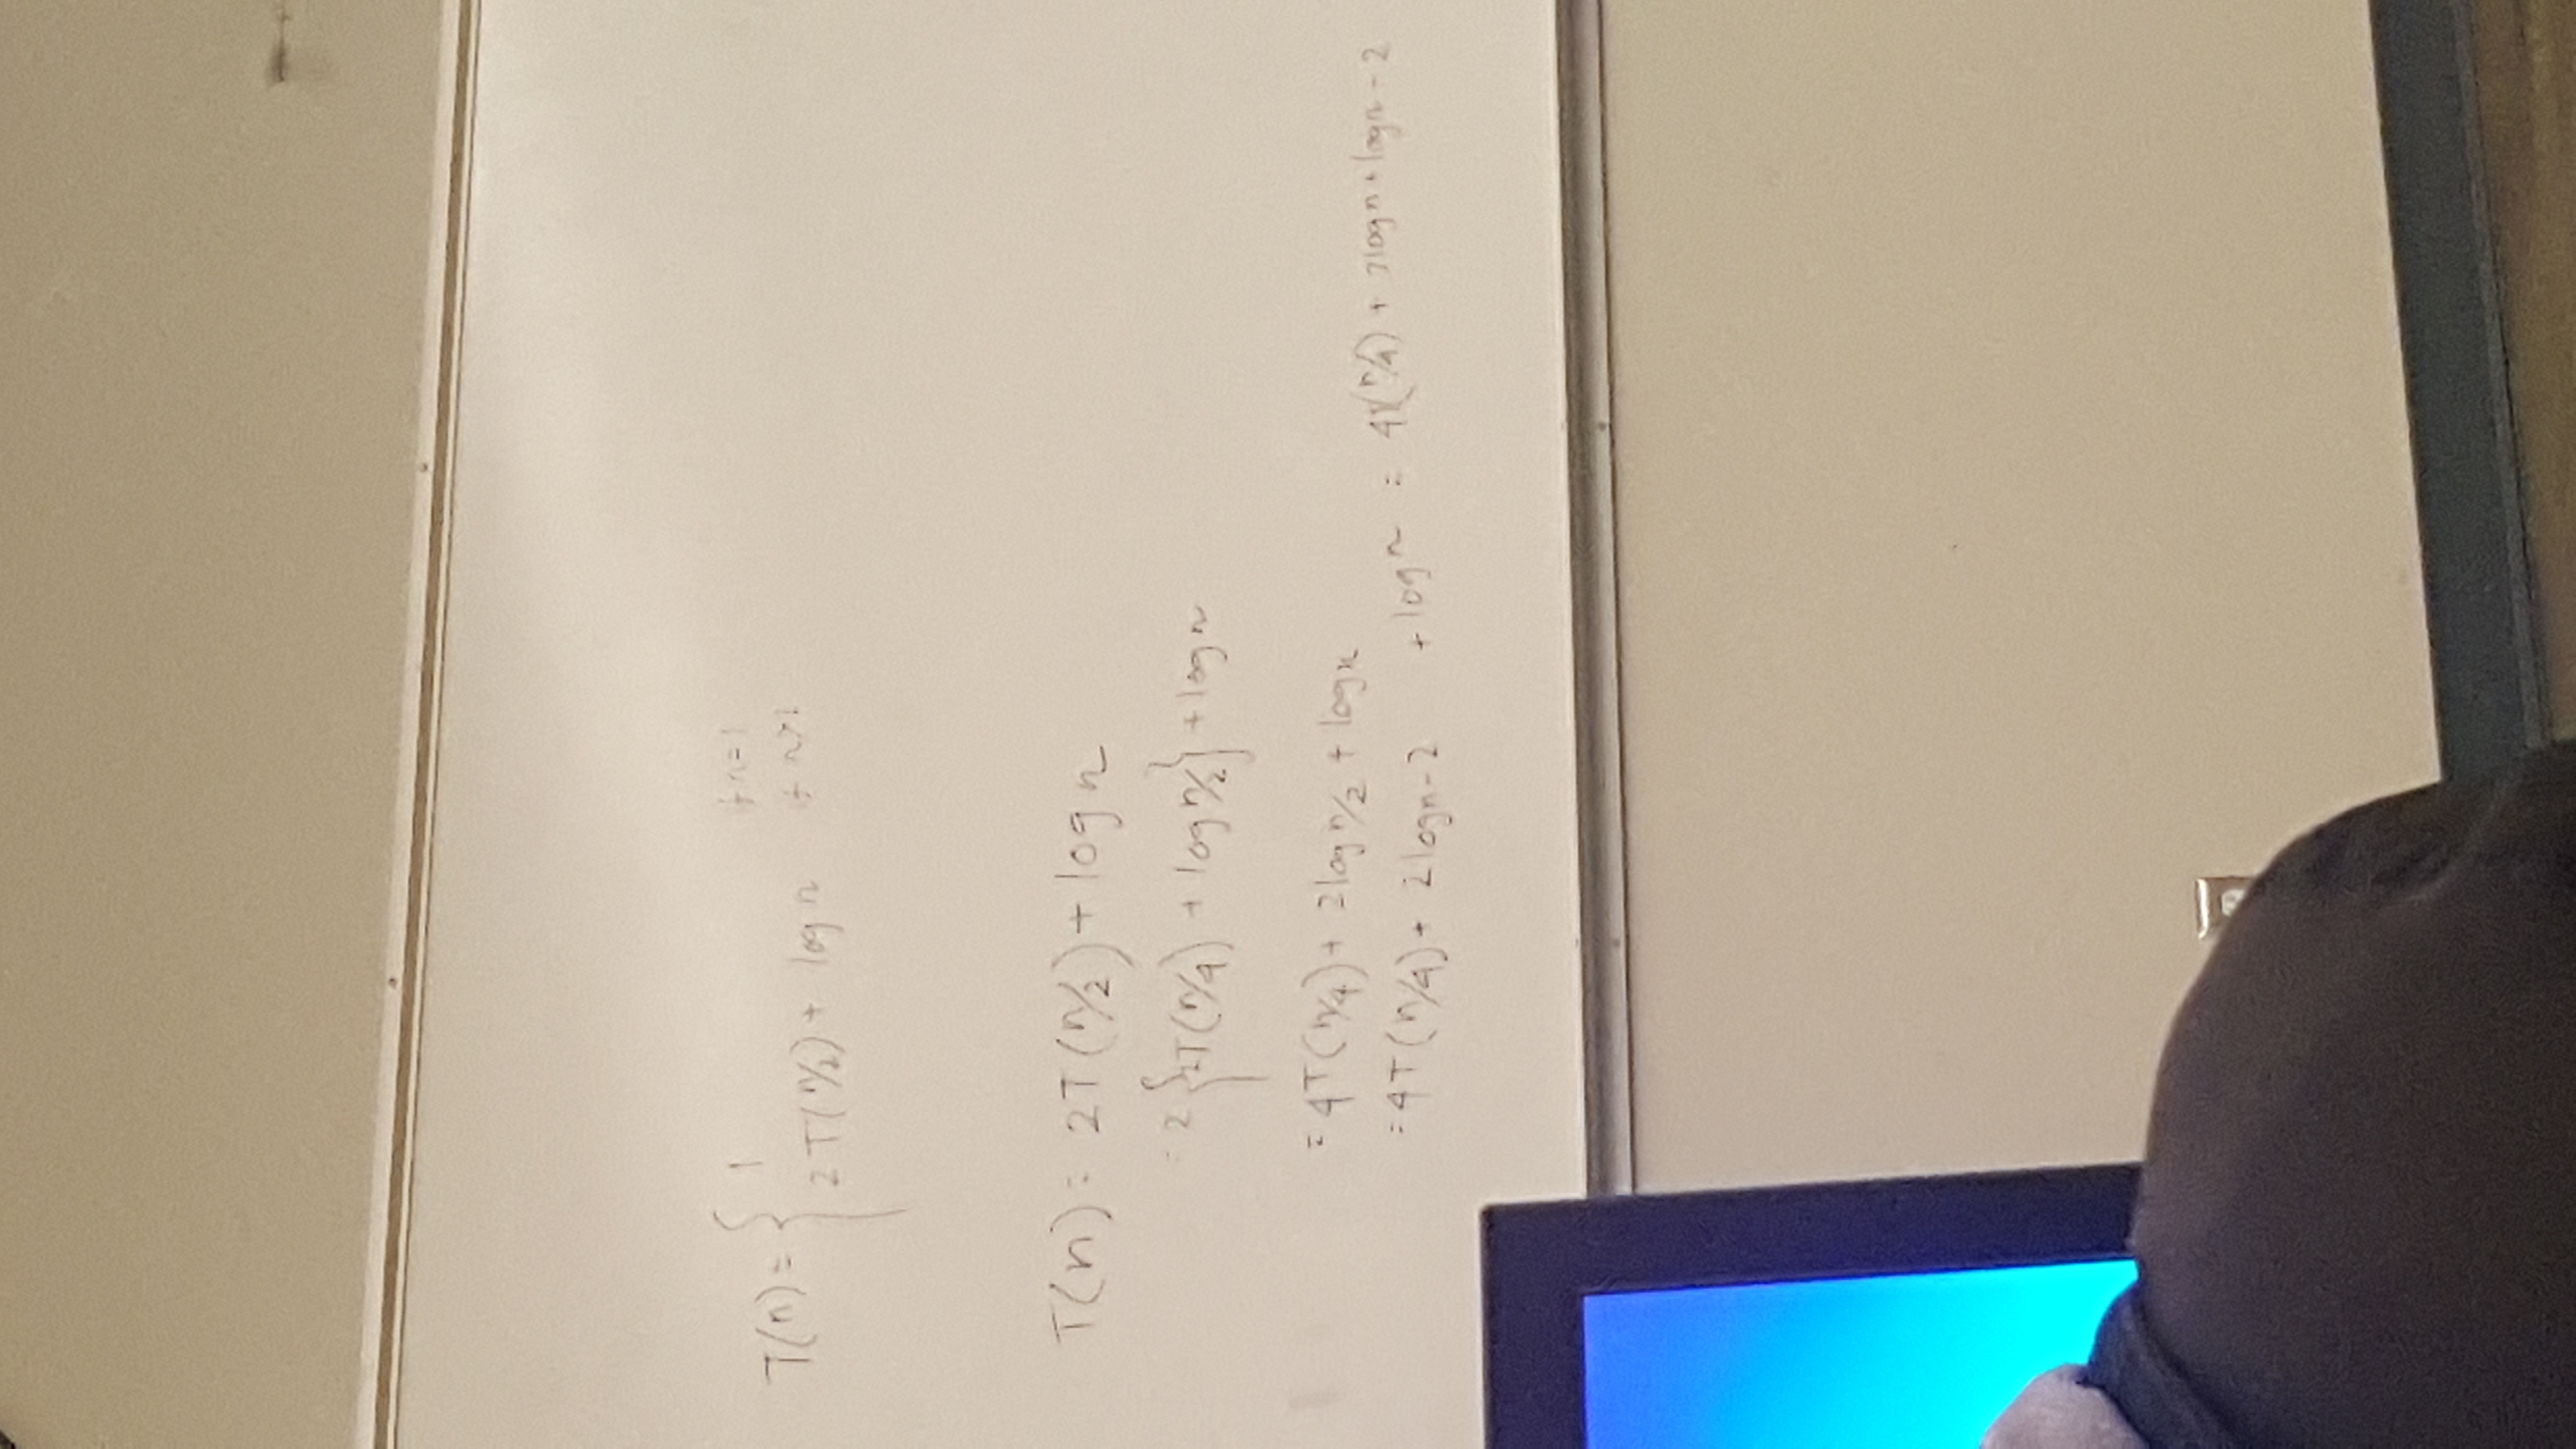 T(n) = { 1 if n=1
2T(n/2) + log n if n>1
T(n) = 2T(n/2) + log n
= 2{2T(n/4) + log n/2} + log n
= 4T(n/4) + 2log n/2 + log n
= 4T(n/4) + 2log n - 2 + log n = 4T(n/4) + 2log n + log n - 2